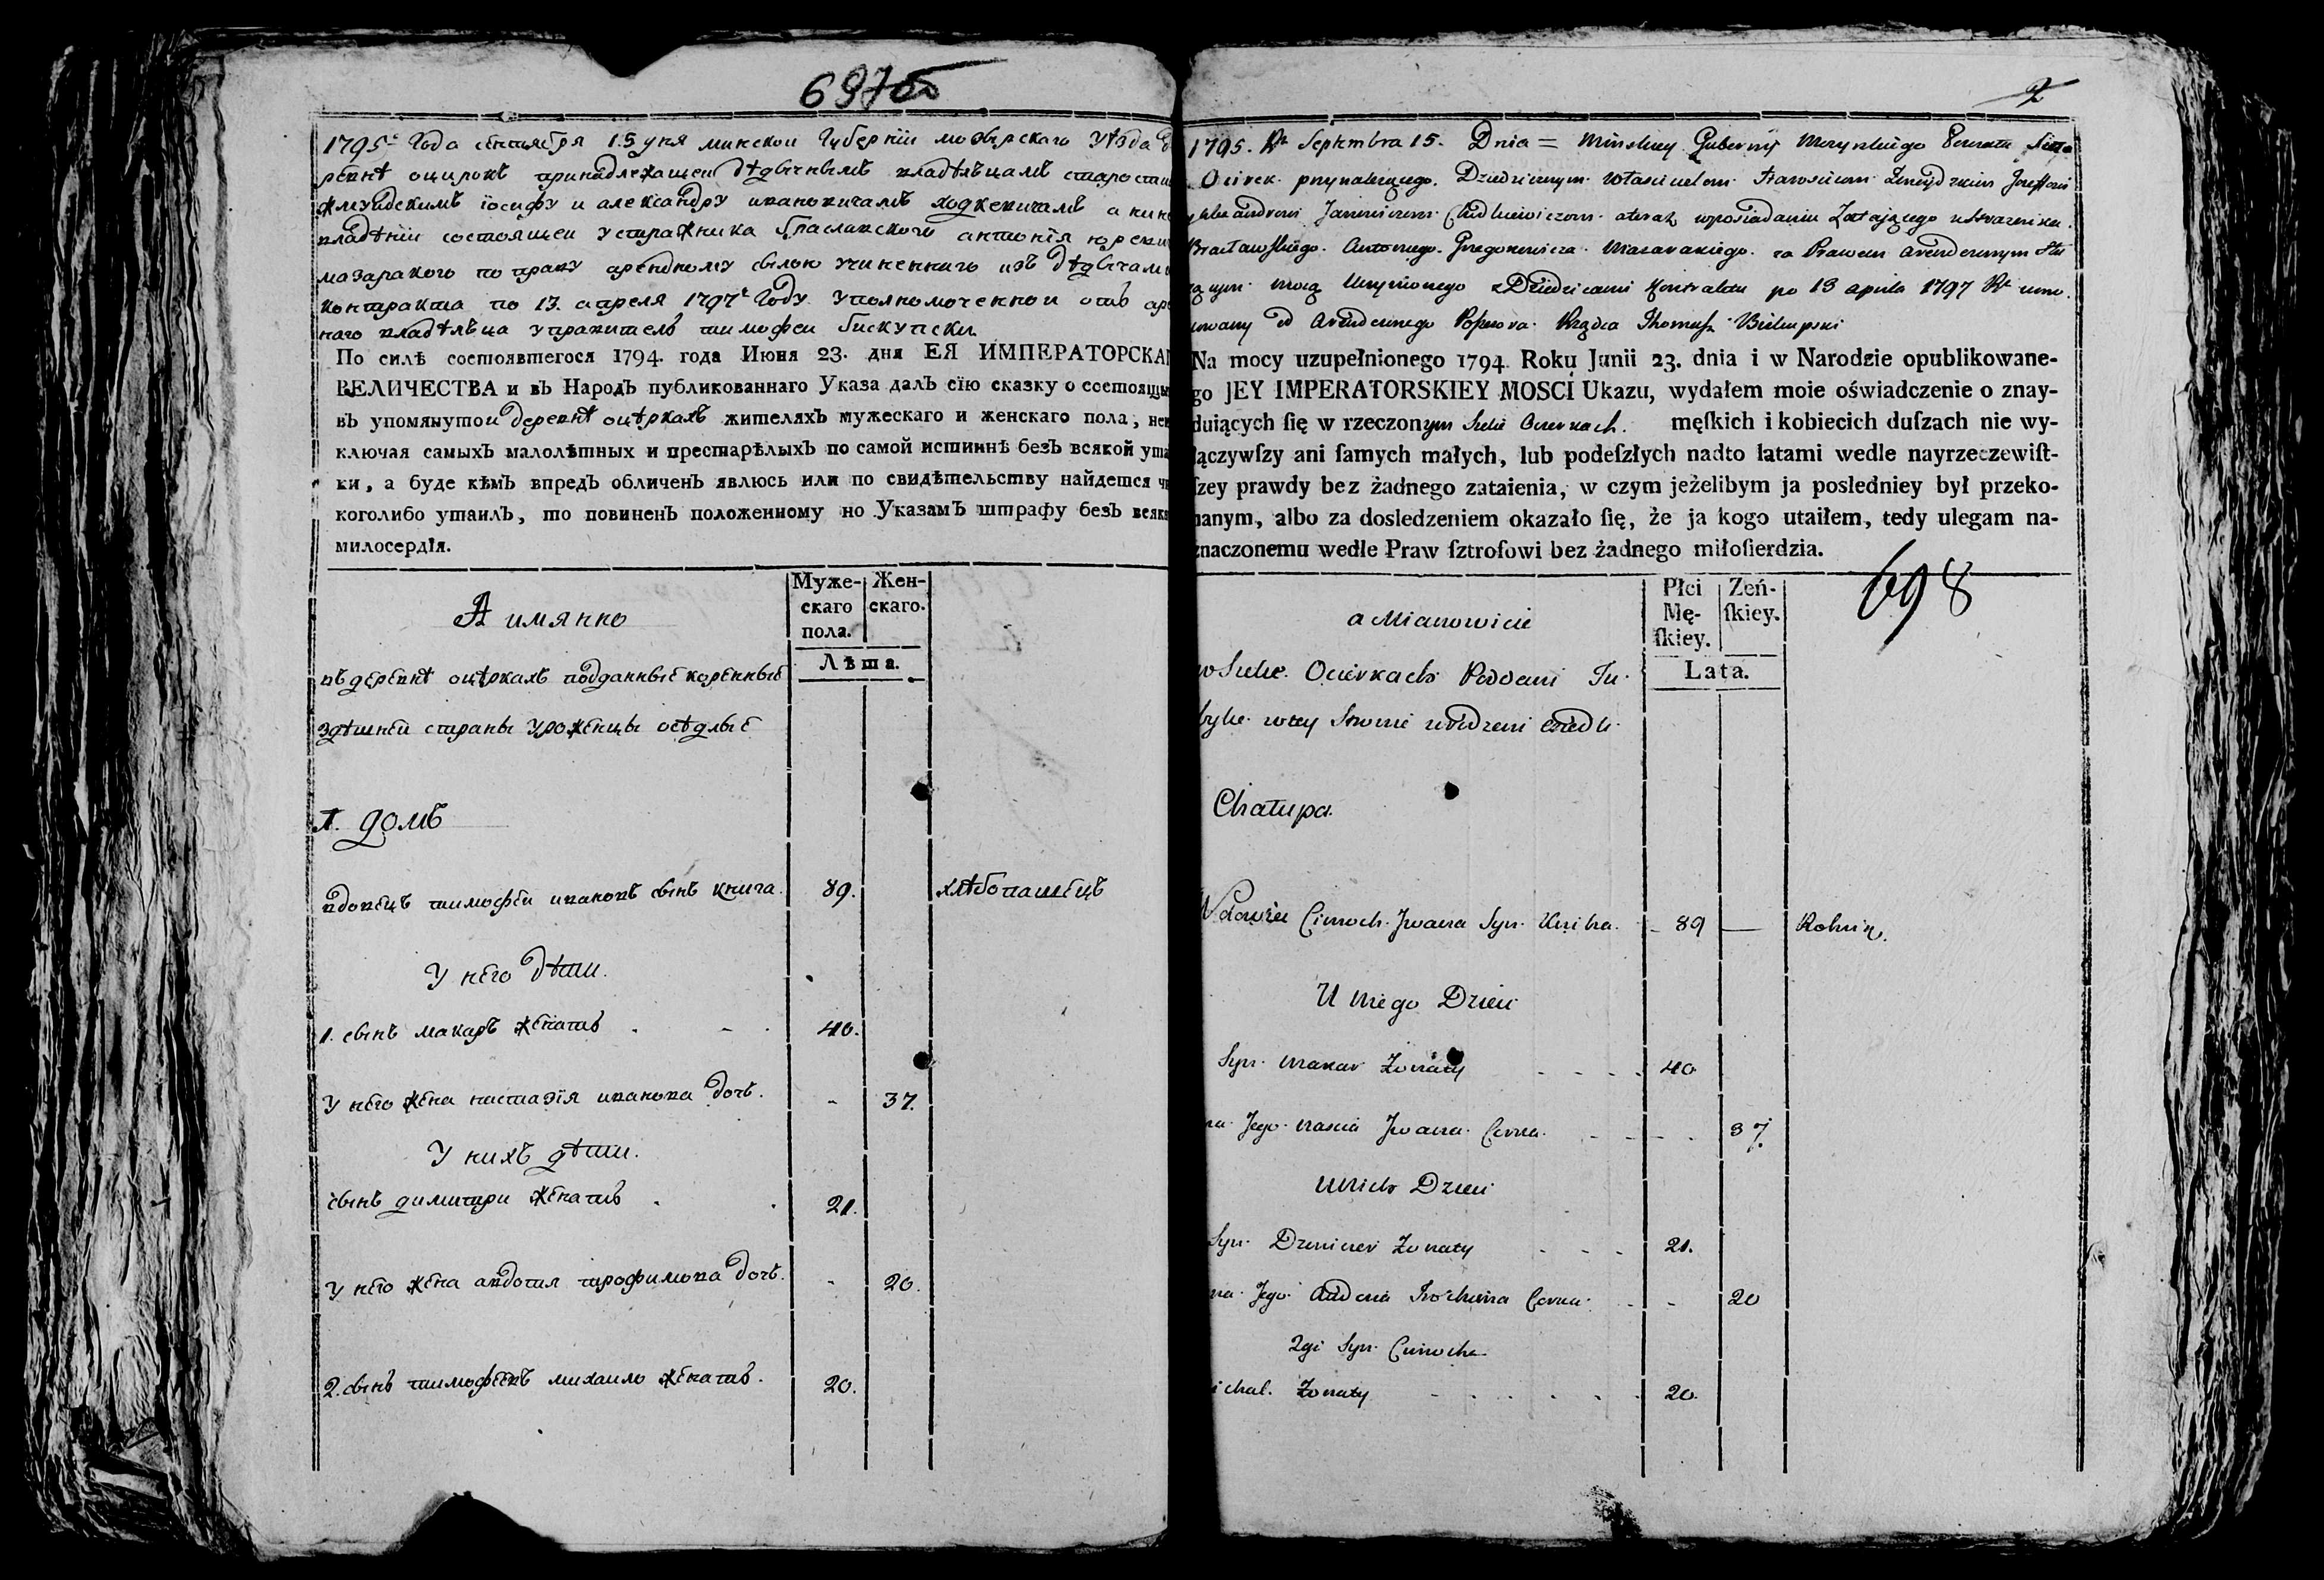 697об
1795г Года сентября 15 дня минской Губернїи мозырскаго уѣзда д
ревнѣ оцирокѣ принадлежащеи дѣдычнымъ владѣльцамъ старостам
жмуйдскимъ іосифу и александру ивановичамъ ходкевичамъ а нынѣ
владѣнїи состоящеи у стражника браславского антонїя
мазаракого по праву арендному силою учиненнаго изъ дѣдычами
контракта по 13. апреля 1797г Году уполномоченнои отъ аре
наго владѣльца управитель тимофеи бискупски
По силѣ состоявшегося 1794. года Июня 23. дня ЕЯ ИМПЕРАТОРСКА
ВЕЛИЧЕСТВА и въ Народъ публикованнаго Указа далъ сїю сказку о состоящи
въ упомянутои деревнѣ оцѣркахъ жителяхъ мужескаго и женскаго пола, не
ключая самыхъ малолѣтных и престарѣлыхъ по самой истиннѣ безъ всякой ута
ки, а буде кѣмъ впредъ обличенъ явлюсь или по свидѣтельству найдется ч
коголибо утаилъ, то повиненъ положенному по Указамъ штрафу безъ всяк
милосердїя.
А имянно
Муже-
скаго
пола.
Жен-
скаго.
Лѣта.
въ деревнѣ оцѣркахъ подданные коренные
здѣшней страны уроженцы осѣдлые
1. домъ
вдовецъ тимофей ивановъ сынъ книга. 89. хлѣбопашецъ
у него дѣти.
1. сынъ макаръ женатъ 40.
у него жена настазїя иванова дочь. 37.
у нихъ дѣти.
сынъ димитри женатъ 21.
у него жена авдотия трофимова дочь. 20.
2. сынъ тимофеевъ михаило женатъ. 20.
2
1795. Rku Septembra 15. Dnia = Minskiey Gubernij Mozyrskiego Powiatu
Ocirek przynależącego. Dziedzicznym Właścicielom Starościcom Zmuydzkim Jozeffowi
y alexandrowi Janowiczom Chodkiewiczom ateraz w posiadaniu Zostającego u Strażnika
Bracławskiego. Antoniego. Grzegorzewicza Mazarakiego. za Prawem arendownym
mocą Uczynionego z Dziedzicami Kontraktu po 13 aprila 1797 Rku umo
cowany od Arendownego Possesora. Rządca Thomasz Biskupski
Na mocy uzupełnionego 1794. Roku Junii 23. dnia i w Narodzie opublikowane-
go JEY IMPERATORSKIEY MOSCI Ukazu, wydałem moie oświadczenie o znay-
duiących ſię w rzeczonym Siele Ocierkach. męſkich i kobiecich duſzach nie wy-
łączywſzy ani ſamych małych, lub podeſzłych nadto latami wedle nayrzeczewiſt-
ſzey prawdy bez żadnego zataienia, w czym jeżelibym ja posledniey był przeko-
nanym, albo za dosledzeniem okazało ſię, że ja kogo utaiłem, tedy ulegam na-
znaczonemu wedle Praw ſztrofowi bez żadnego miłoſierdzia.
698
a Mianowicie
Płci
Mę-
ſkiey.
Zeń-
ſkiey.
Lata.
w Siele. Ocierkach Poddani Tu-
byle. w tey Stronie urodzeni Osiedli
Chałupa.
Wdowiec Cimoch. Jwana Syn. Kniha. 89 Rolnik.
U niego Dzieci
Syn. Makar Żonaty 40
na. Jego. Nascia Jwana. Corka. 37.
U nich Dzieci
Syn. Dzmicier Żonaty 21.
na. Jego. Audocia Trochima Corka. 20
2gi Syn. Cimocha
ichał. Żonaty 20.